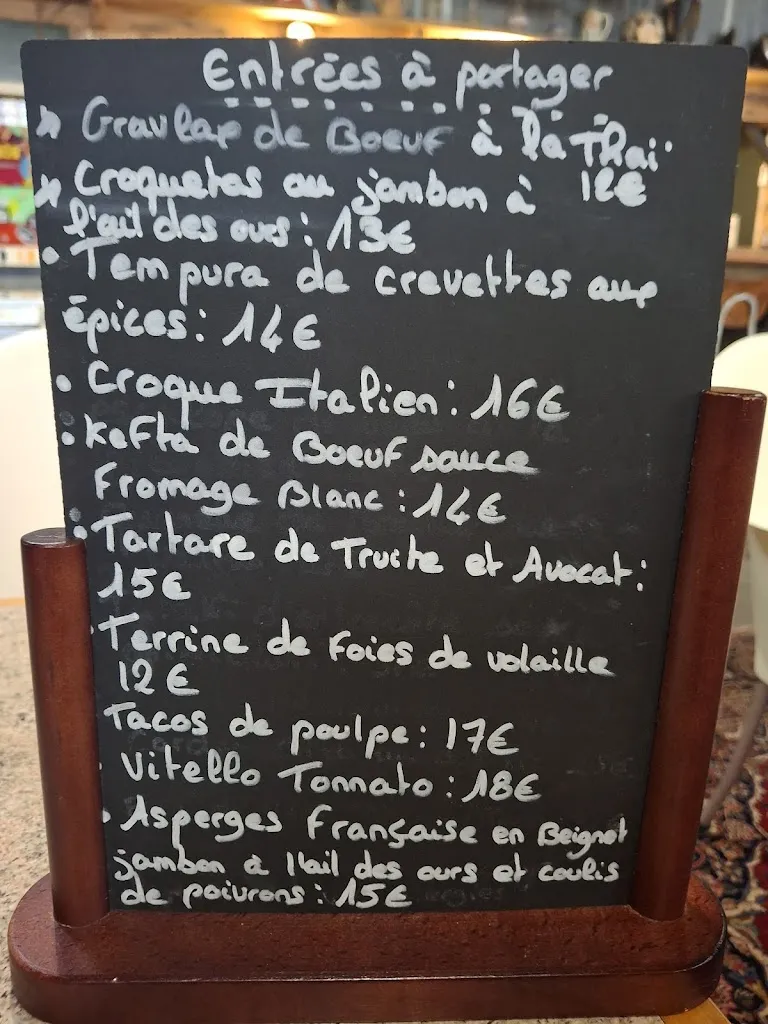 Entrées à partager
Gravlax de Boeuf à la Thaï
Croquetas au jambon à 12€
l'ail des ours : 13€
• Tempura de crevettes aux
épices : 14€
• Croque Italien : 16€
• Kefta de Boeuf sauce
Fromage Blanc : 14€
• Tartare de Truite et Avocat :
15€
• Terrine de Foies de volaille
12€
Tacos de poulpe : 17€
• Vitello Tonnato : 18€
• Asperges Française en Beignet
jambon à l'ail des ours et coulis
de poivrons : 15€